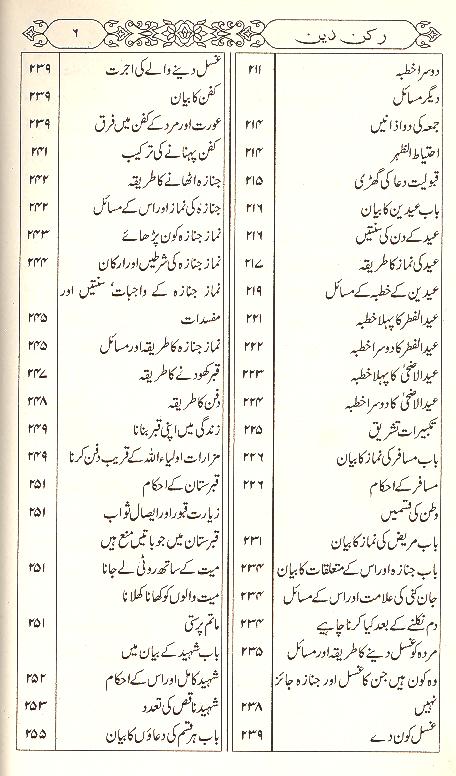 رکن دین
۶
دوسرا خطبہ ۲۱۱
دیگر مسائل
جمعہ کی دو اذانیں ۲۱۴
احتیاط الظہر ۲۱۴
قبولیت دعا کی گھڑی ۲۱۵
باب عیدین کا بیان ۲۱۶
عید کے دن کی سنتیں ۲۱۶
عید کی نماز کا طریقہ ۲۱۷
عیدین کے خطبہ کے مسائل ۲۱۹
عید الفطر کا پہلا خطبہ ۲۲۱
عید الفطر کا دوسرا خطبہ ۲۲۲
عید الاضحیٰ کا پہلا خطبہ ۲۲۳
عید الاضحیٰ کا دوسرا خطبہ ۲۲۴
تکبیرات تشریق ۲۲۵
باب مسافر کی نماز کا بیان ۲۲۶
مسافر کے احکام ۲۲۶
وطن کی قسمیں
باب مریض کی نماز کا بیان ۲۳۱
باب جنازہ اور اس کے متعلقات کا بیان ۲۳۴
جان کنی کی علامت اور اس کے مسائل ۲۳۴
دم نکلنے کے بعد کیا کرنا چاہیے ۲۳۴
مردہ کو غسل دینے کا طریقہ اور مسائل ۲۳۵
وہ کون ہیں جن کا غسل اور جنازہ جائز
نہیں ۲۳۸
غسل کون دے ۲۳۹
غسل دینے والے کی اجرت ۲۳۹
کفن کا بیان ۲۳۹
عورت اور مرد کے کفن میں فرق ۲۳۹
کفن پہنانے کی ترکیب ۲۴۱
جنازہ اٹھانے کا طریقہ ۲۴۲
جنازہ کی نماز اور اس کے مسائل ۲۴۲
نماز جنازہ کون پڑھائے ۲۴۳
نماز جنازہ کی شرطیں اور ارکان ۲۴۴
نماز جنازہ کے واجبات‘ سنتیں اور
مفسدات ۲۴۵
نماز جنازہ کا طریقہ اور مسائل ۲۴۵
قبر کھودنے کا طریقہ ۲۴۷
دفن کا طریقہ ۲۴۸
زندگی میں اپنی قبر بنانا ۲۴۹
مزارات اولیاء اللہ کے قریب دفن کرنا ۲۴۹
قبرستان کے احکام ۲۵۱
زیارت قبور اور ایصال ثواب ۲۵۱
قبرستان میں جو باتیں منع ہیں
میت کے ساتھ روٹی لے جانا ۲۵۱
میت والوں کو کھانا کھلانا
ماتم پرستی ۲۵۱
باب شہید کے بیان میں
شہید کامل اور اس کے احکام ۲۵۲
شہید ناقص کی تعدد ۲۵۳
باب ہر قسم کی دعاؤں کا بیان ۲۵۵